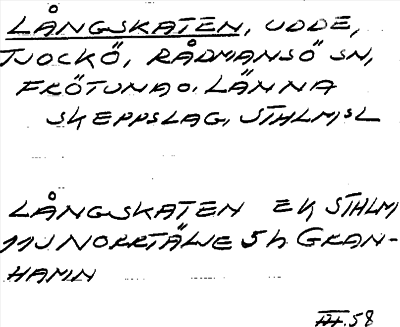 LÅNGSKATEN, UDDE,
TJOCKÖ, RÅDMANSÖ SN,
FRÖTUNA O. LÄNNA
SKEPPSLAG, STHLM,SL
LÅNGSKATEN EK, STHLM
11J NORRTÄLJE 5 h. GRAN-
HAMN
III.58